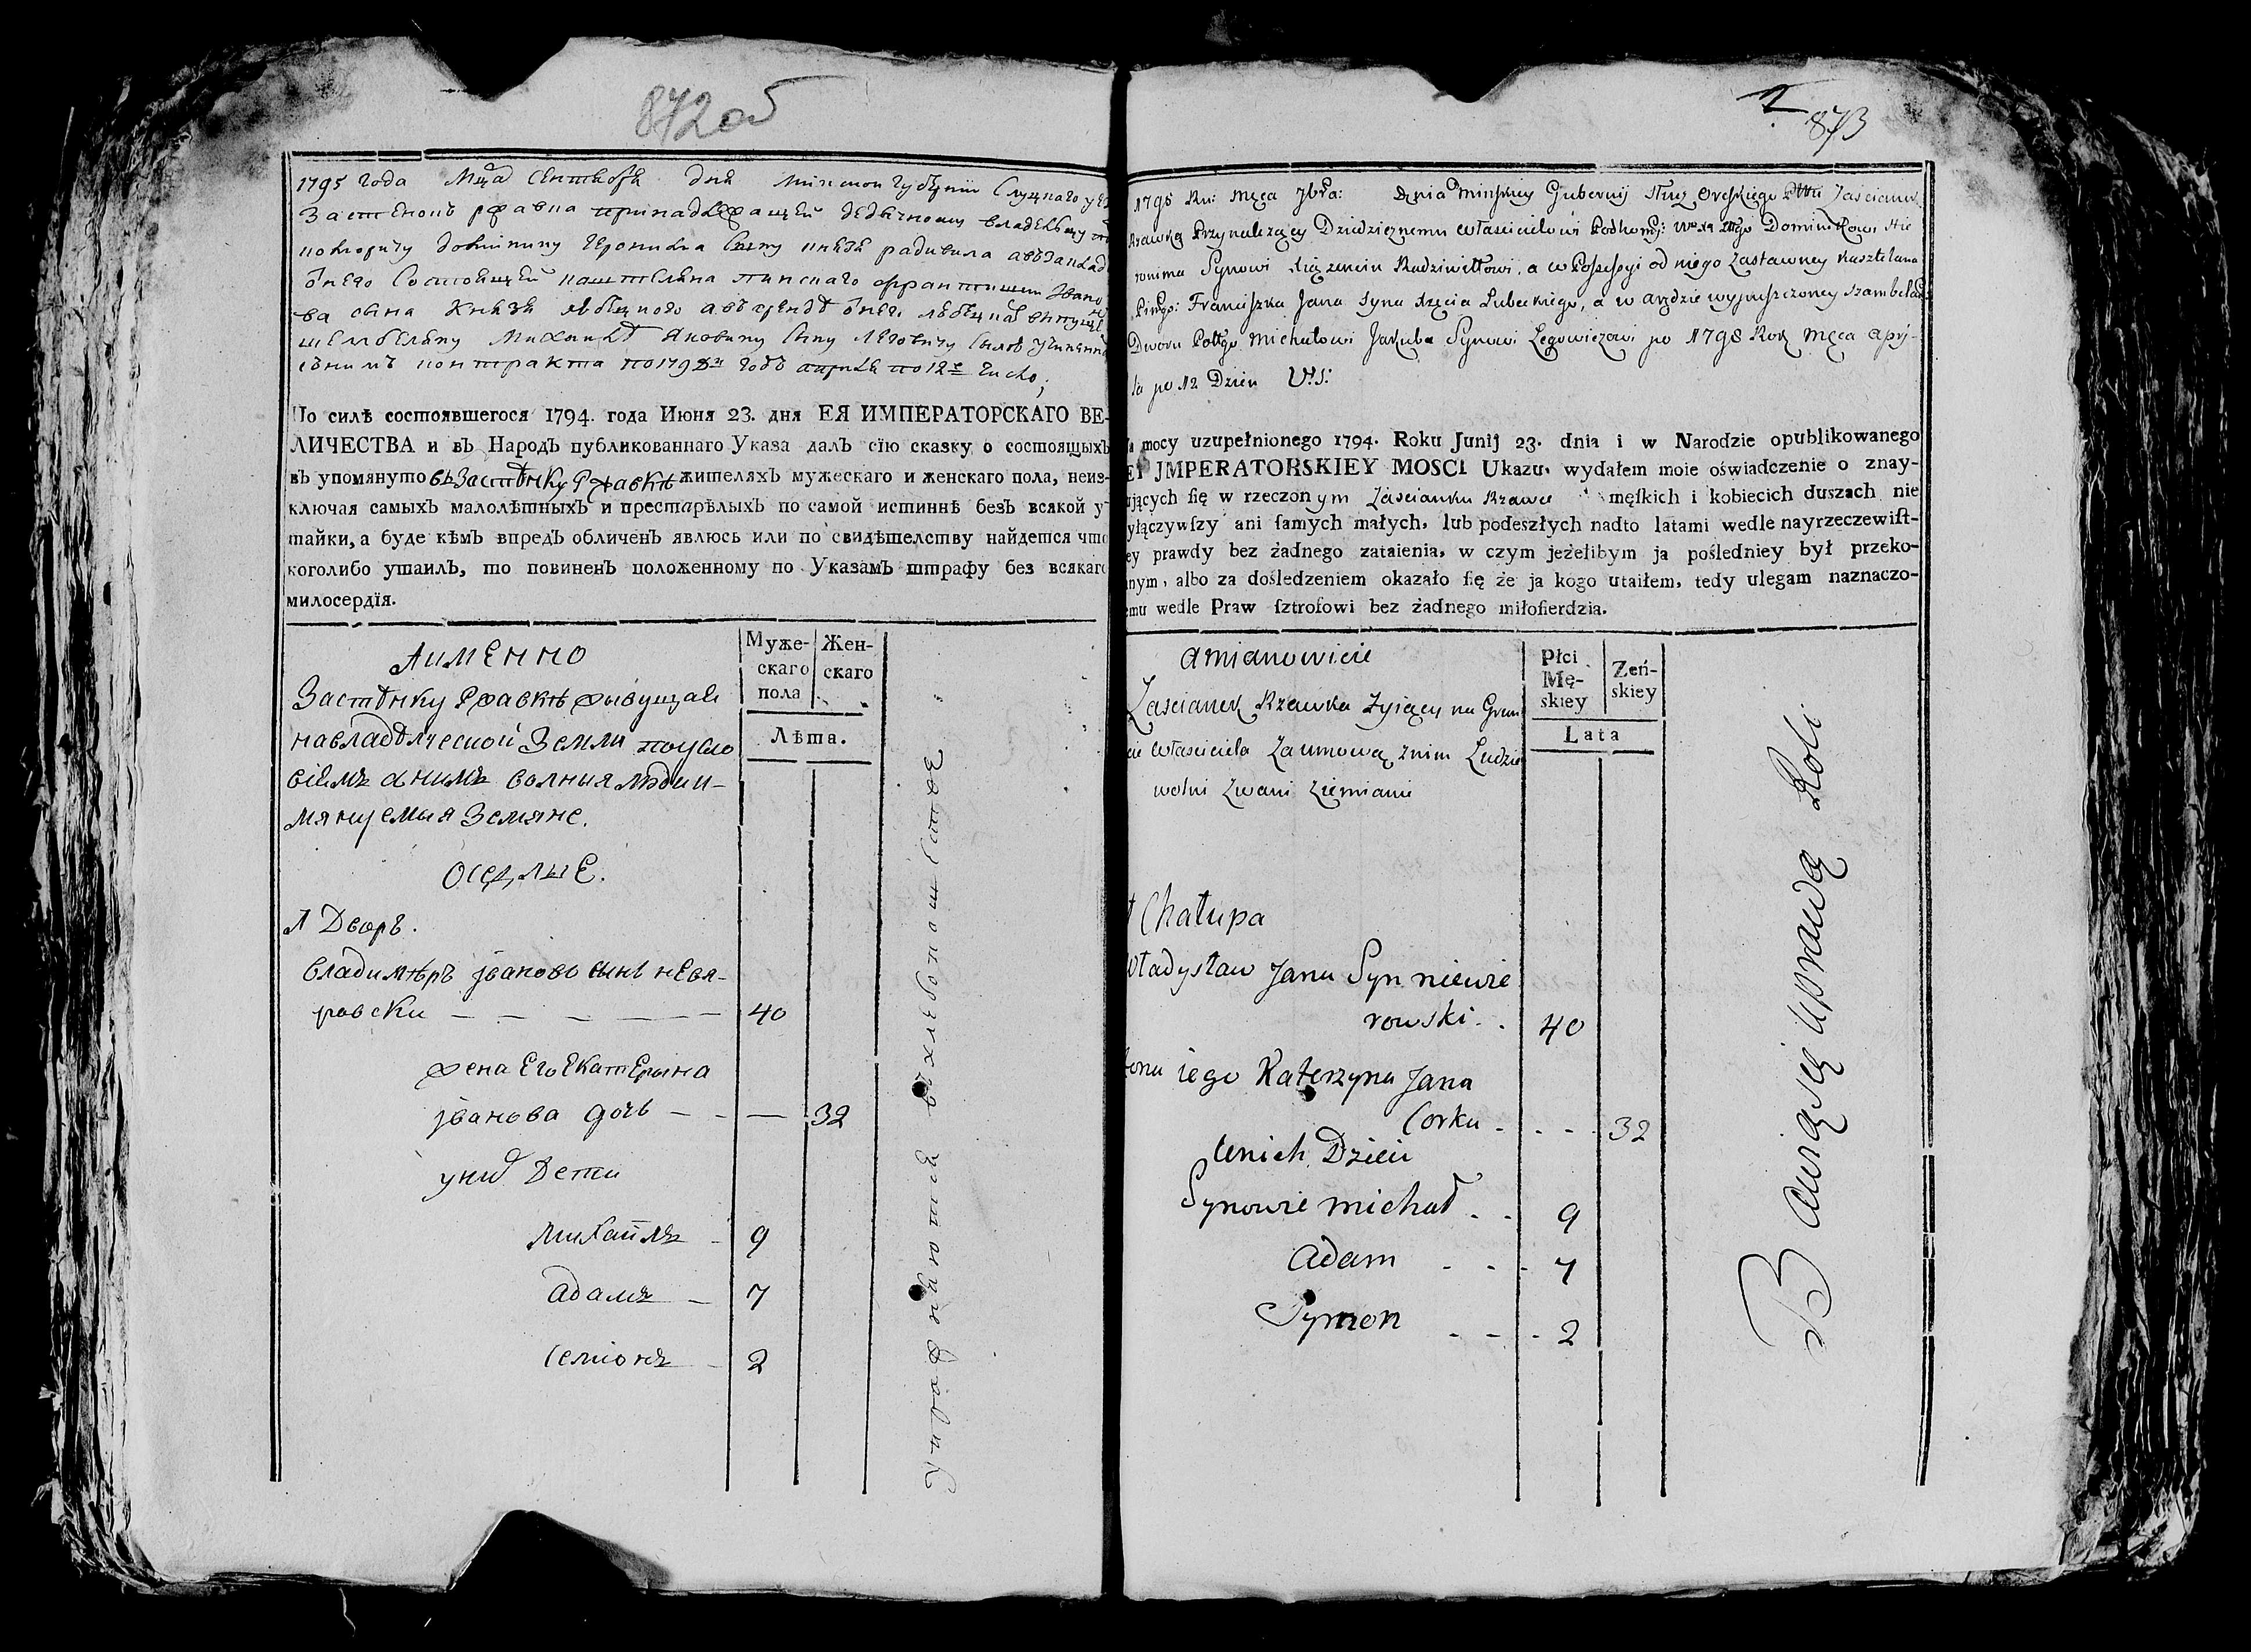 872об
1795 года Мца Сентября дня Минской Губернии Слуцкаго
Застенокъ Ржавка принадлежащей дедычному владельцу
Доминику Героnима Сыну князя радивила
Состоящей каштеляна пинскаго францишка
ва сына Князя
Михаилѣ Яковину сыну Леговичу
контракта по 1798й годъ апреля по 12е число;
По силѣ состоявшегося 1794. года Июня 23. дня ЕЯ ИМПЕРАТОРСКАГО ВЕ-
ЛИЧЕСТВА и въ Народъ публикованнаго Указа далъ сїю сказку о состоящыхъ
въ упомянуто въ Застѣнку Ржавкѣ жителяхъ мужескаго и женскаго пола, неиз-
ключая самыхъ малолѣтныхъ и престарѣлыхъ по самой истиннѣ безъ всякой у-
тайки, а буде кѣмъ впредъ обличенъ явлюсь или по свидѣтелству найдется что
коголибо утаилъ, то повиненъ положенному по Указамъ штрафу без всякаго
милосердїя.
Аименно
Муже-
скаго
пола
Жен-
скаго
Лѣта.
Застѣнку Ржавкѣ живущая
навладѣлческой Земли поусло
віемъ сннмъ волныя люди и-
мянуемыя Земяне.
Осѣдлые.
1 Дворъ.
Владимѣръ Јвановъ сынъ невя-
ровски — — — — — 40
жена Его Екатерына
Јванова дочь — — — 32
у них Дети
Михайлъ - 9
адамъ — 7
Семіонъ - 2
упражняются въ хлебопашестве
2
873
1795 Ru: Męca 7bra: Dnia Minskiey Gubernij Zascianek
Rzawka Przynalezący Dziedzicznemu własciciełowi Podkomo: Dominikowi Hie
ronima Synowi Xiązenciu Radziwiłłowi, a w Possessyi od niego Zastawney Kasztelana
Pingo: Franciszka Jana Syna Xięcia Lubeckiego, a w arędzie wypuszczoney Szambelan
Dworu Polłgo Michałowi Jakuba Synowi Legowiczowi po 1798 Rok Męca Apry-
la po 12 Dzien V: S:
mocy uzupełnionego 1794. Roku Junij 23. dnia i w Narodzie opublikowanego
JMPERATORSKIEY MOSCI Ukazu, wydałem moie oświadczenie o znay-
ujących ſię w rzeczonym Zascianku Rzawce męſkich i kobiecich duszach nie
yłączywſzy ani ſamych małych, lub podeszłych nadto latami wedle nayrzeczewiſt-
ey prawdy bez żadnego zataienia, w czym jeżelibym ja pośledniey był przeko-
nym, albo za dośledzeniem okazało ſię że ja kogo utaiłem, tedy ulegam naznaczo-
emu wedle Praw ſztrofowi bez żadnego miłoſierdzia.
amianowicie
Płci
Mę-
skiey
Zeń-
skiey
Lata
Zascianek Rzawka Zyiący na Grun
cie własciciela Zaumową znim Ludzie
wolni Zwani Ziemianie
1 Chałupa
Władysław Jana Syn niewie
rowski . . 40
Zona iego Katerzyna Jana
Corka - - - 32
Unich Dzieci
Synowie michał . . 9
Adam - - - 7
Symon - - - 2
Bawią się Uprawą Roli